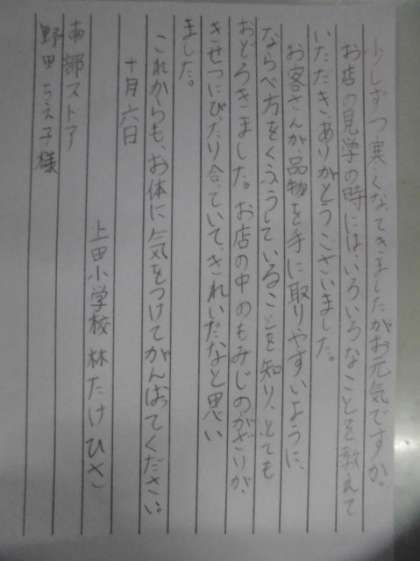 少しずつ寒くなてきましたがお元気ですか。
お店の見学の時には、いろいろなことを教えて
いただきありがとうございました。
お客さんが品物を手に取りやすいように、
ならべ方をくふうしていることを知り、とても
おどろきました。お店の中のもみじのかざりが、
きせつにぴたり合ていて、きれいだなと思い
ました。
これからも、お体に気をつけてがんばてくださいた
十月六日
上田小学校 林たけひさ
南部ストア
野田ちえ子様